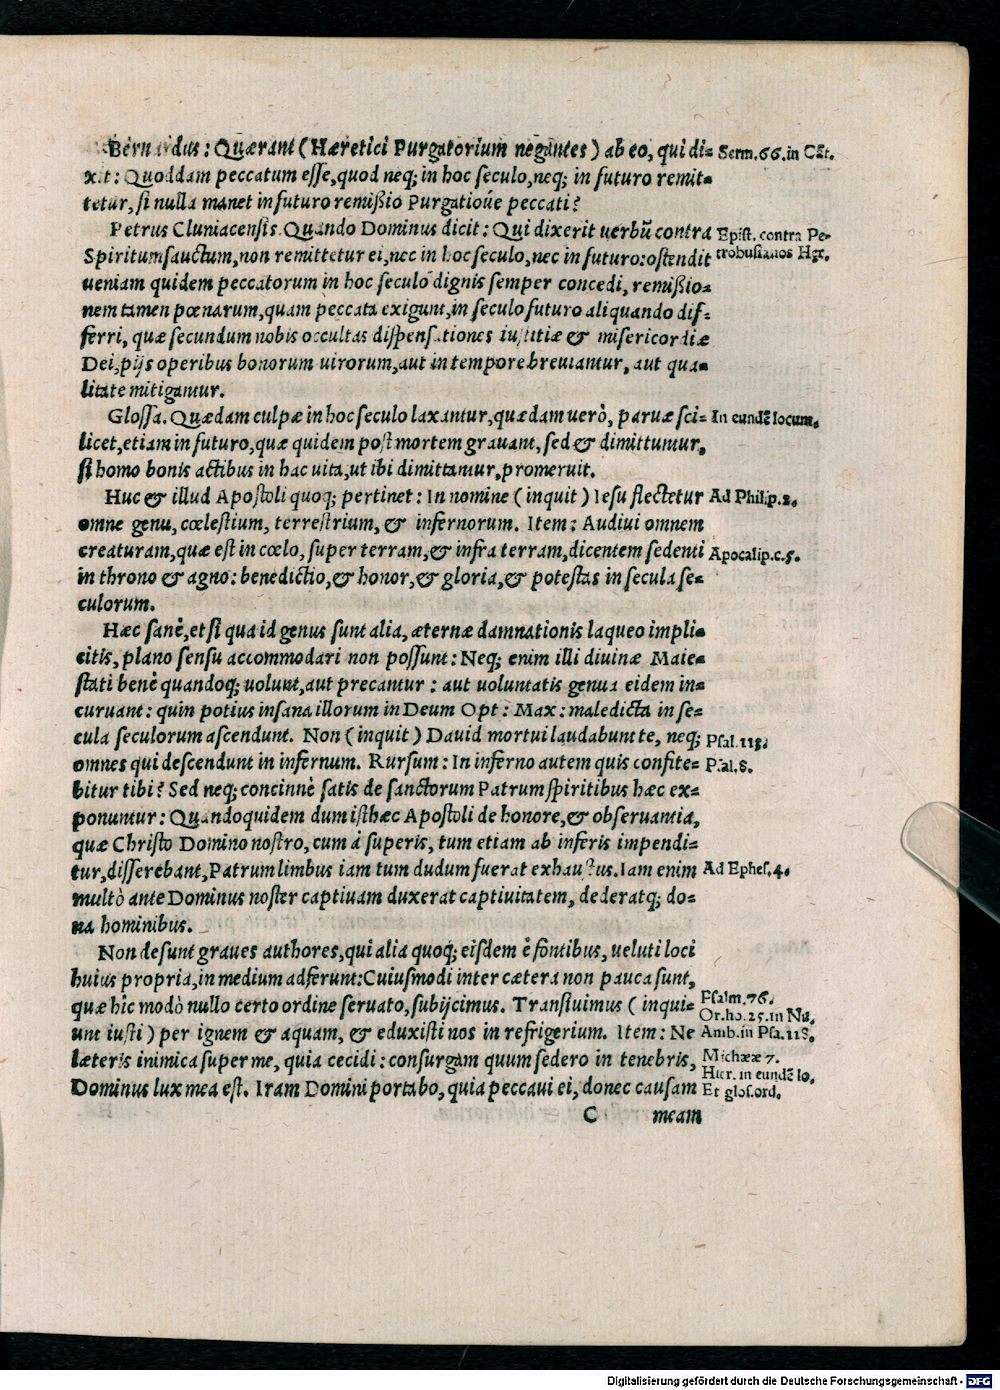 Bernardus: Quærant (Hæretici Purgatorium negantes) ab eo, qui di= Serm. 66. in Cāt.
xit: Quoddam peccatum esse, quod neq; in hoc seculo, neq; in futuro remit=
tetur, si nulla manet in futuro remißio Purgatioúe peccati?
Petrus Cluniacensis. Quando Dominus dicit: Qui dixerit uerbū contra Epist. contra Pe=
Spiritum sanctum, non remittetur ei, nec in hoc seculo, nec in futuro: ostendit trobusianos Hær.
ueniam quidem peccatorum in hoc seculo dignis semper concedi, remißio=
nem tamen pœnarum, quam peccata exigunt, in seculo futuro aliquando dif=
ferri, quæ secundum nobis occultas dispensationes iustitiæ & misericordiæ
Dei, pijs operibus bonorum uirorum, aut in tempore breuiantur, aut qua=
litate mitigantur.
Glossa. Quædam culpæ in hoc seculo laxantur, quædam uerò, paruæ sci= In eundē locum.
licet, etiam in futuro, quæ quidem post mortem grauant, sed & dimittuntur,
si homo bonis actibus in hac uita, ut ibi dimittantur, promeruit.
Huc & illud Apostoli quoq; pertinet: In nomine (inquit) Iesu flectetur Ad Philip. 2.
omne genu, cœlestium, terrestrium, & infernorum. Item: Audiui omnem
creaturam, quæ est in cœlo, super terram, & infra terram, dicentem sedenti Apocalip. c. 5.
in throno & agno: benedictio, & honor, & gloria, & potestas in secula se=
culorum.
Hæc sanè, et si qua id genus sunt alia, æternæ damnationis laqueo impli=
citis, plano sensu accommodari non possunt: Neq; enim illi diuinæ Maie=
stati benè quandoq; uolunt, aut precantur: aut uoluntatis genua eidem in=
curuant: quin potius insana illorum in Deum Opt: Max: maledicta in se=
cula seculorum ascendunt. Non (inquit) Dauid mortui laudabunt te, neq; Psal. 113.
omnes qui descendunt in infernum. Rursum: In inferno autem quis confite= Psal. 8.
bitur tibi? Sed neq; concinnè satis de sanctorum Patrum spiritibus hæc ex=
ponuntur: Quandoquidem dum isthæc Apostoli de honore, & obseruantia,
quæ Christo Domino nostro, cum à superis, tum etiam ab inferis impendi=
tur, disserebant, Patrum limbus iam tum dudum fuerat exhaustus. Iam enim Ad Ephes. 4.
multò ante Dominus noster captiuam duxerat captiuitatem, dederatq; do=
na hominibus.
Non desunt graues authores, qui alia quoq; eisdem è fontibus, ueluti loci
huius propria, in medium adferunt: Cuiusmodi inter cætera non pauca sunt,
quæ hîc modò nullo certo ordine seruato, subijcimus. Transiuimus (inqui= Psalm. 76. Or. ho. 25. in Nu.
unt iusti) per ignem & aquam, & eduxisti nos in refrigerium. Item: Ne Amb. in Psa. 118.
læteris inimica super me, quia cecidi: consurgam quum sedero in tenebris, Michææ 7. Hier. in eundē lo.
Dominus lux mea est. Iram Domini portabo, quia peccaui ei, donec causam Et glos. ord.
C meam
Digitalisierung gefördert durch die Deutsche Forschungsgemeinschaft - DFG